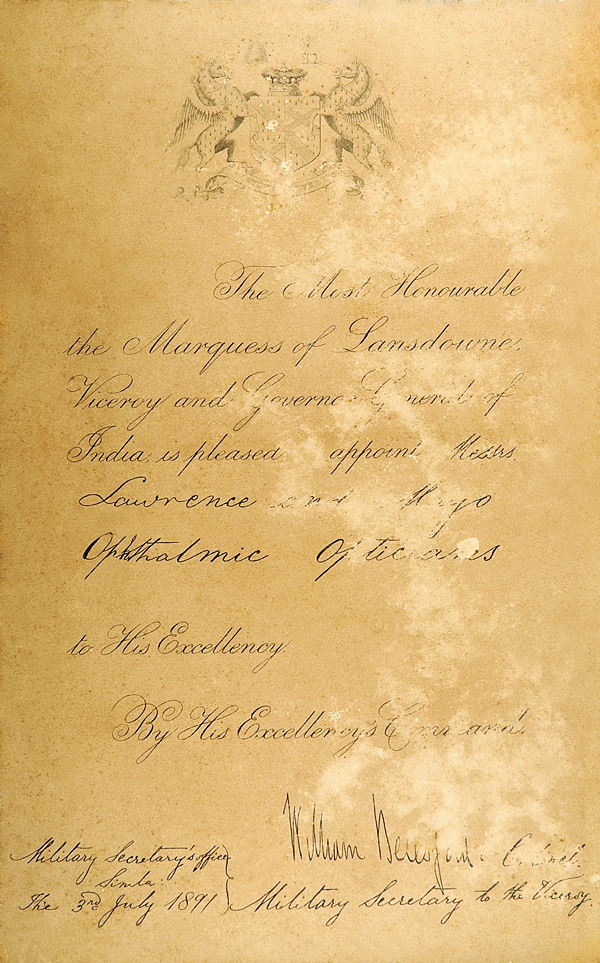 The Most Honourable
the Marquess of Lansdowne,
Viceroy and Governor General of
India, is pleased appoint Messrs.
Lawrence and Mayo
Ophthalmic Opticians
to His Excellency.
By His Excellency's Command.
William Beresford
Military Secretary's office
Simla
The 3rd July 1891
Military Secretary to the Viceroy.